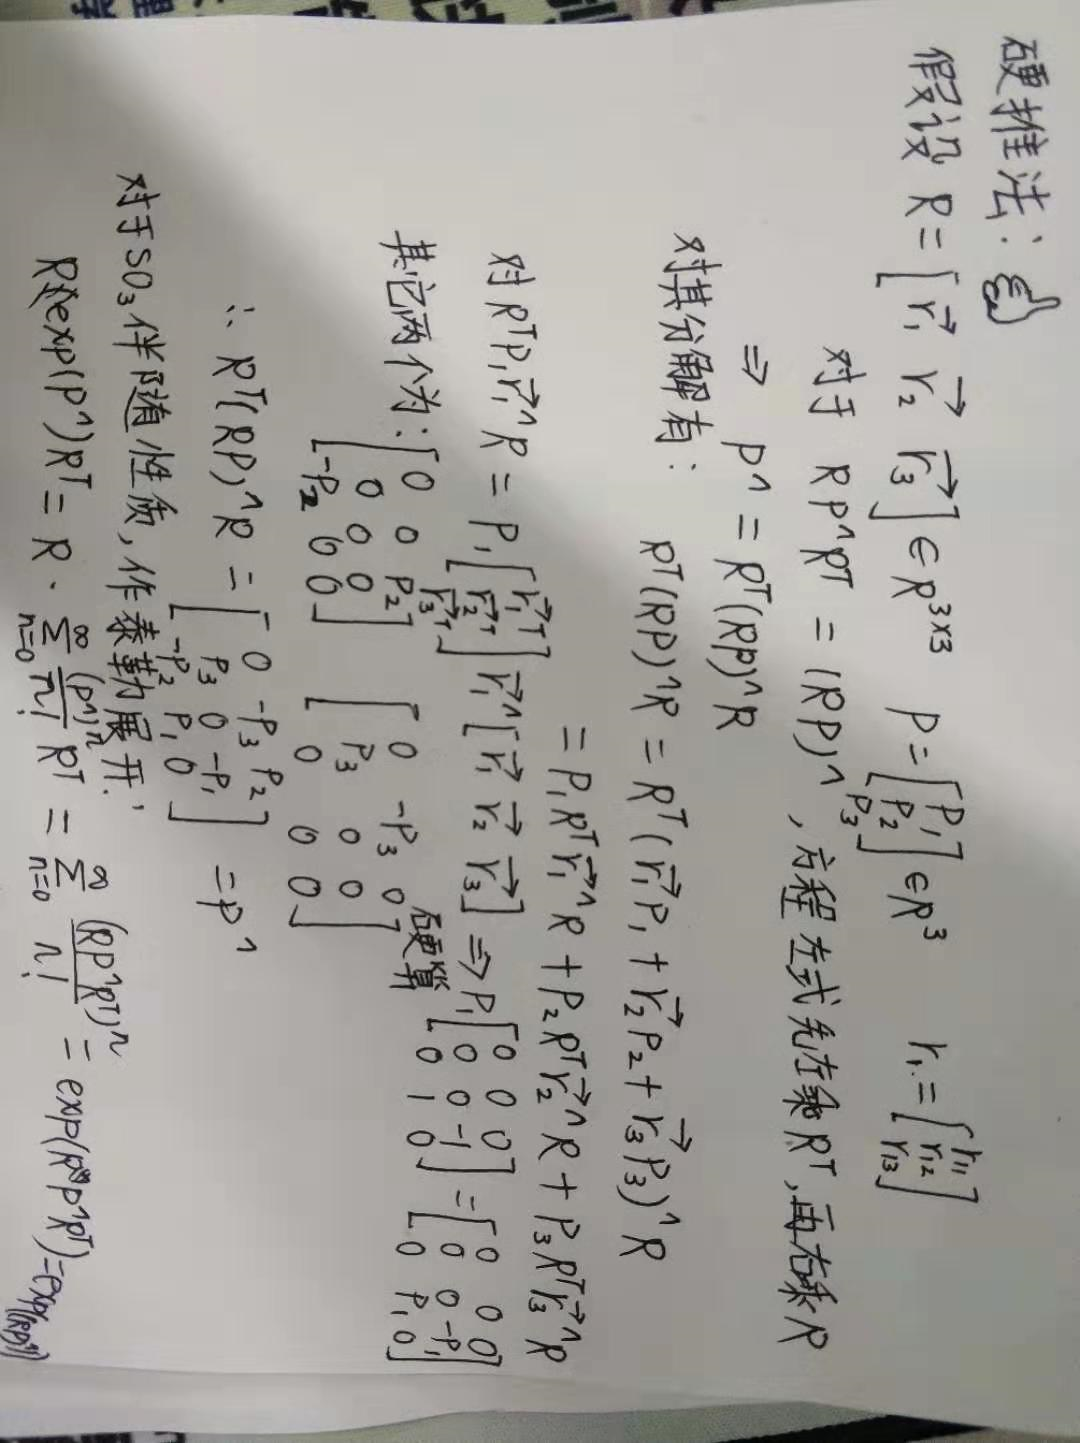 硬推法：
假设 R = [r₁→ r₂→ r₃→] ∈ R³ˣ³ P = [P₁ P₂ P₃] ∈ R³ r₁. = [r₁₁ r₁₂ r₁₃]
对于 RP^Rᵀ = (RP)^ , 方程左式先左乘Rᵀ, 再右乘R
⇒ P^ = Rᵀ(RP)^R
对其分解有: Rᵀ(RP)^R = Rᵀ(r₁→P₁ + r₂→P₂ + r₃→P₃)^R
= P₁Rᵀr₁→^R + P₂Rᵀr₂→^R + P₃Rᵀr₃→^R
对RᵀP₁r₁→^R = P₁[r₁→ᵀ r₂→ᵀ r₃→ᵀ] r₁→^[r₁→ r₂→ r₃→] ⇒ 硬算 P₁[0 0 0; 0 0 -1; 0 1 0] = [0 0 0; 0 0 -P₁; 0 P₁ 0]
其它两个为: [0 0 P₂; 0 0 0; -P₂ 0 0] [0 -P₃ 0; P₃ 0 0; 0 0 0]
∴ Rᵀ(RP)^R = [0 -P₃ P₂; P₃ 0 -P₁; -P₂ P₁ 0] = P^
对于SO₃伴随性质, 作泰勒展开:
R exp(P^)Rᵀ = R · ∑ₙ₌₀^∞ (P^)ⁿ/n! Rᵀ = ∑ₙ₌₀^∞ (RP^Rᵀ)ⁿ/n! = exp(RP^Rᵀ) = exp((RP)^)